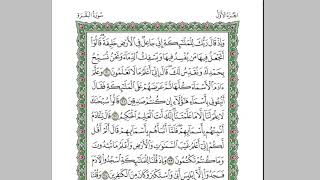 الجزء الأول
سورة البقرة
وَإِذْ قَالَ رَبُّكَ لِلْمَلَٰٓئِكَةِ إِنِّي جَاعِلٌ فِي ٱلْأَرْضِ خَلِيفَةً قَالُوٓاْ
أَتَجْعَلُ فِيهَا مَن يُفْسِدُ فِيهَا وَيَسْفِكُ ٱلدِّمَآءَ وَنَحْنُ نُسَبِّحُ
بِحَمْدِكَ وَنُقَدِّسُ لَكَ قَالَ إِنِّيٓ أَعْلَمُ مَا لَا تَعْلَمُونَ ٣٠ وَعَلَّمَ
ءَادَمَ ٱلْأَسْمَآءَ كُلَّهَا ثُمَّ عَرَضَهُمْ عَلَى ٱلْمَلَٰٓئِكَةِ فَقَالَ
أَنۢبِـُٔونِي بِأَسْمَآءِ هَٰٓؤُلَآءِ إِن كُنتُمْ صَٰدِقِينَ ٣١ قَالُواْ سُبْحَٰنَكَ
لَا عِلْمَ لَنَآ إِلَّا مَا عَلَّمْتَنَآ إِنَّكَ أَنتَ ٱلْعَلِيمُ ٱلْحَكِيمُ ٣٢ قَالَ
يَٰٓـَٔادَمُ أَنۢبِئْهُم بِأَسْمَآئِهِمْ فَلَمَّآ أَنۢبَأَهُم بِأَسْمَآئِهِمْ قَالَ أَلَمْ أَقُل
لَّكُمْ إِنِّيٓ أَعْلَمُ غَيْبَ ٱلسَّمَٰوَٰتِ وَٱلْأَرْضِ وَأَعْلَمُ مَا تُبْدُونَ
وَمَا كُنتُمْ تَكْتُمُونَ ٣٣ وَإِذْ قُلْنَا لِلْمَلَٰٓئِكَةِ ٱسْجُدُواْ لِأٓدَمَ
فَسَجَدُوٓاْ إِلَّآ إِبْلِيسَ أَبَىٰ وَٱسْتَكْبَرَ وَكَانَ مِنَ ٱلْكَٰفِرِينَ ٣٤ وَقُلْنَا